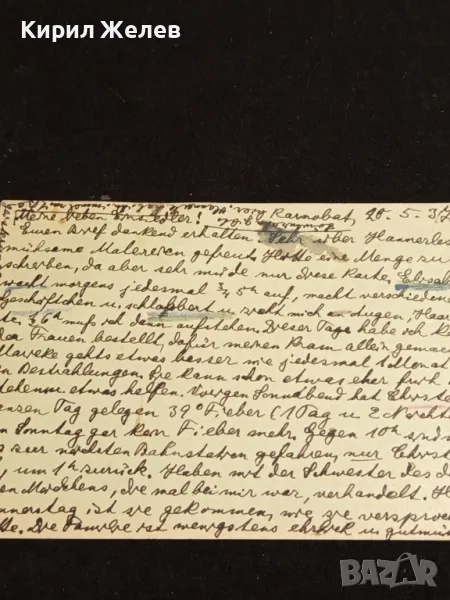 Кирил Желев
Meine lieben Einsiedler! Karnobat, 20-5-37
Euren Brief dankend erhalten. Sehr über Hannerles
mühsame Malereien gefreut. Hätte eine Menge zu
schreiben, da aber sehr müde nur diese Karte.
wacht morgens jedesmal 3/4 5h auf, macht verschiedene
geschäftlichen u. schlabbert u. zieht mich an Augen, Haar
te, 3/4 6h muss ich dann aufstehen. Dieser Tage habe ich k
der Frauen bestellt, dafür meinen Kram allein gemac
gehts etwas besser nie jedesmal 1 Monat
n Bestrahlungen. Sie kann schon etwas eher früh
stehen u. etwas helfen. Vorigen Sonnabend hat Christe
nzen Tag gelegen 39° Fieber (1 Tag u. 2 Nächte
n Sonntag gar kein Fieber mehr. Gegen 10h sind
s zur nächsten Bahnstation gefahren, nur Christ
, um 1h zurück. Haben mit der Schwester des d
en Mädchens, die mal bei mir war, verhandelt.
nnerstag ist sie gekommen, wie sie versproc
tte. Die Familie ist wenigstens ehrlich u. gutmü
BAZAR.bg